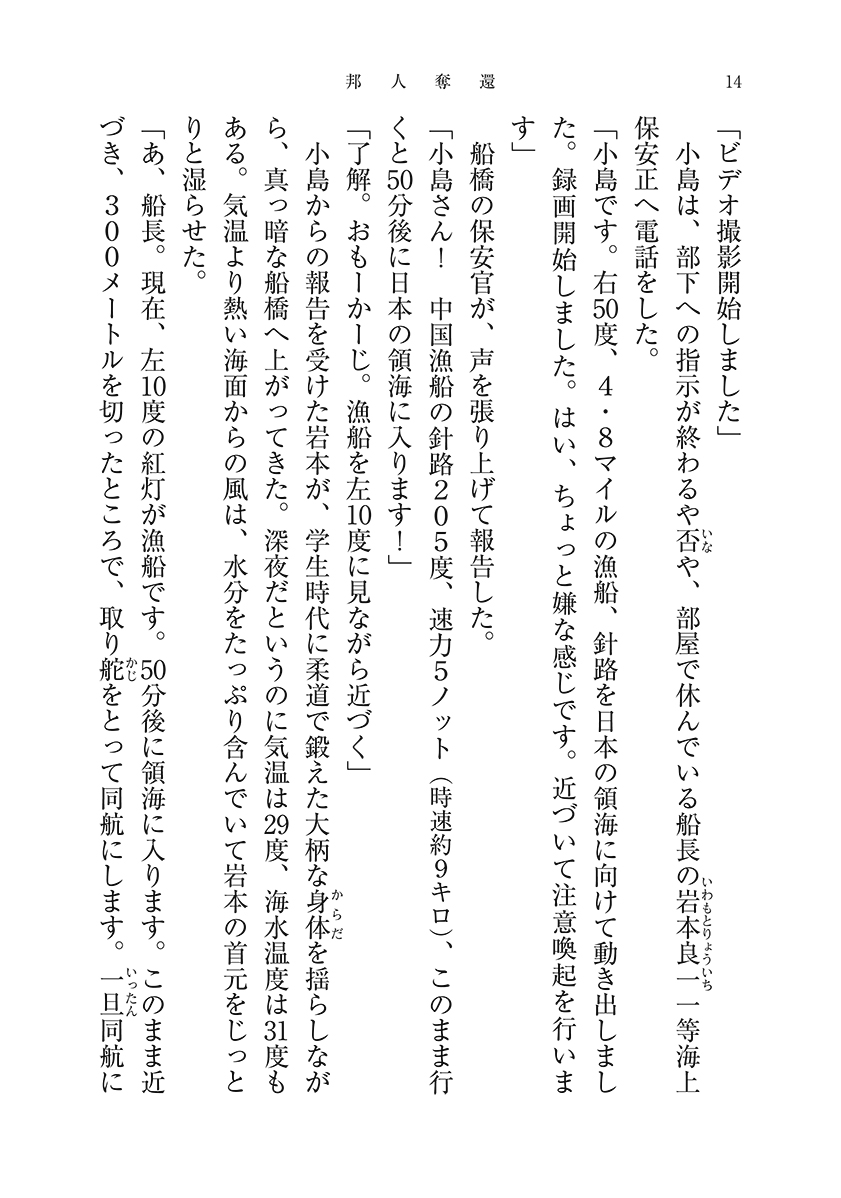 邦人奪還
14
「ビデオ撮影開始しました」
　小島は、部下への指示が終わるや否や、部屋で休んでいる船長の岩本良一一等海上
いな
いわもとりょういち
保安正へ電話をした。
「小島です。右50度、4・8マイルの漁船、針路を日本の領海に向けて動き出しまし
た。録画開始しました。はい、ちょっと嫌な感じです。近づいて注意喚起を行いま
す」
　船橋の保安官が、声を張り上げて報告した。
「小島さん！　中国漁船の針路205度、速力5ノット（時速約9キロ）、このまま行
くと50分後に日本の領海に入ります！」
「了解。おもーかーじ。漁船を左10度に見ながら近づく」
　小島からの報告を受けた岩本が、学生時代に柔道で鍛えた大柄な身体を揺らしなが
からだ
ら、真っ暗な船橋へ上がってきた。深夜だというのに気温は29度、海水温度は31度も
ある。気温より熱い海面からの風は、水分をたっぷり含んでいて岩本の首元をじっと
りと湿らせた。
「あ、船長。現在、左10度の紅灯が漁船です。50分後に領海に入ります。このまま近
づき、300メートルを切ったところで、取り舵をとって同航にします。一旦同航に
かじ
いったん